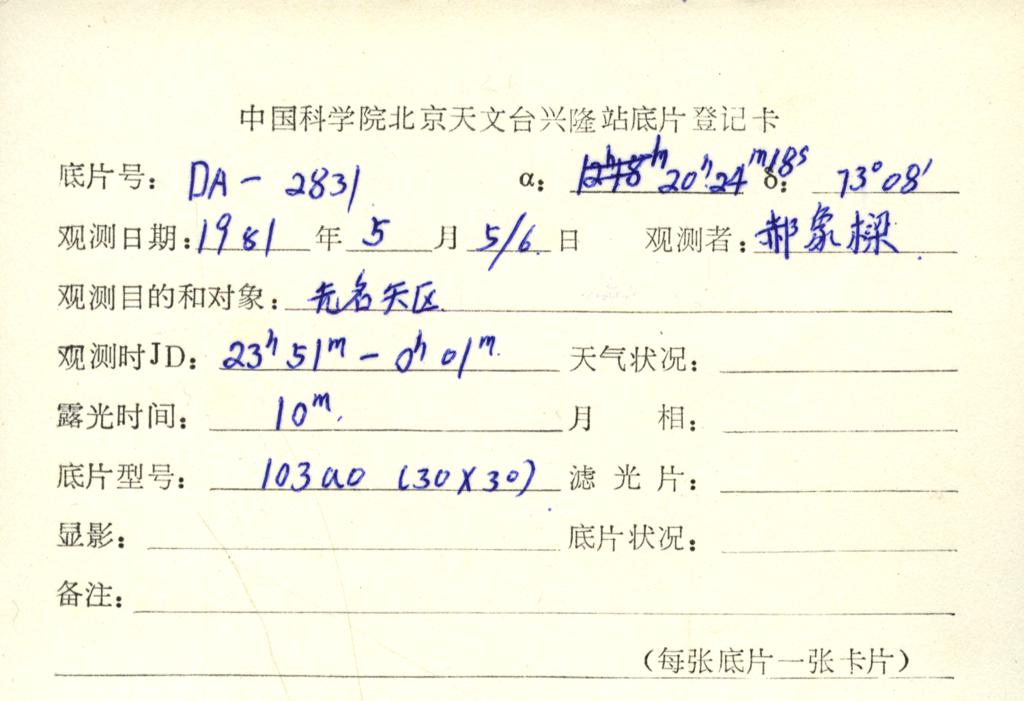 中国科学院北京天文台兴隆站底片登记卡
底片号: DA-2831 α: 20ʰ24ᵐ18ˢ δ: 73°08′
观测日期: 1981 年 5 月 5/6 日 观测者: 郝象樑
观测目的和对象: 无名天区
观测时JD: 23ʰ51ᵐ-0ʰ01ᵐ 天气状况:
露光时间: 10ᵐ. 月 相:
底片型号: 103aO (30×30) 滤光片:
显影: 底片状况:
备注:
(每张底片一张卡片)